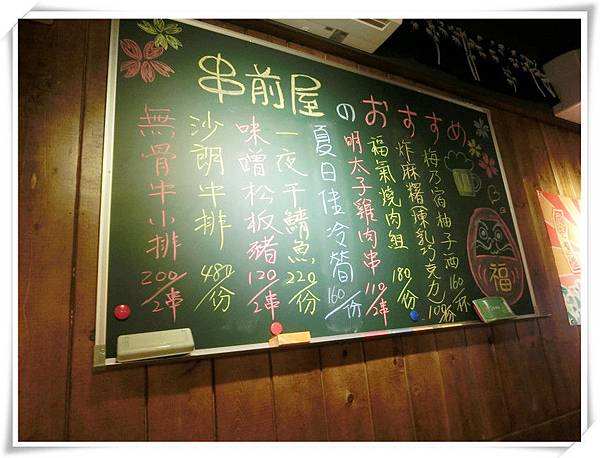 串前屋のおすすめ
梅乃宿柚子酒 160/杯
炸麻糬(煉乳巧克力) 100/份
福氣燒肉組 180/份
明太子雞肉串 110/2串
夏日佳冷筍 160/份
一夜干鯖魚 220/份
味噌松板豬 120/2串
沙朗牛排 480/份
無骨牛小排 200/2串
福